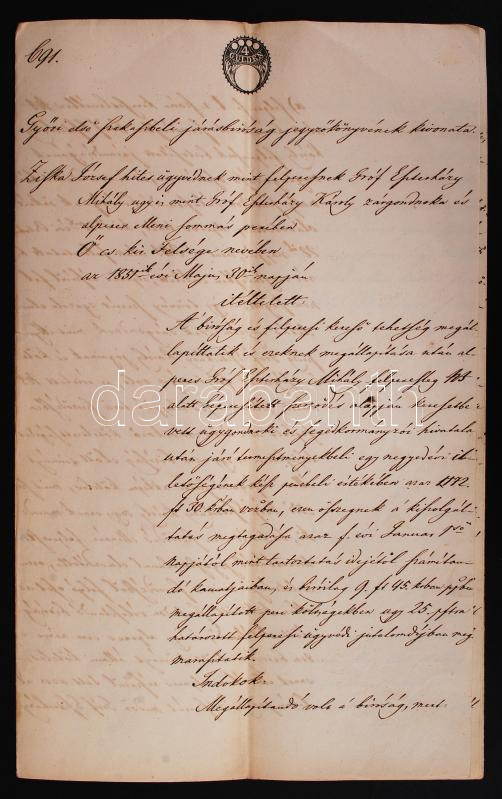 691.
4
Győri első frekasbeli járásbiróság jegyzőkönyvének kivonata.
Ziska József hites ügyvédnek mint felperesnek Gróf Esterházy
Mihály ugy is mint Gróf Esterházy Károly zárgondnoka és
alperes Meni sommás perében
Ő cs. kir. Felsége nevében
az 1851ik évi Majus 30ik napján
itéltetett.
A biróság és felperesi kereső tehetség megál-
lapittatik és ezeknek megállapitása után al-
peres Gróf Esterházy Mihály felperesileg
alatt szerződés alapján keresetbe
vett ügygondnoki és jogi kormányzói hivatala
után járó egy negyedévi il-
letőségének kész pénzbeli értékében azaz 1172.
ft 30 krban ezen összegnek a kiszolgál-
tatás megtagadása azaz f. évi Januar
napjától mint tartoztatás idejétől számitan-
dó kamatjaiban, és biróilag 9. ft 45. krban
megállapitott peri költségekben ugy 25. pftra
határozott felperesi ügyvédi jutalomdijban meg
marasztatik.
Indokok
Megállapitandó volt a biróság, mert
darabanth